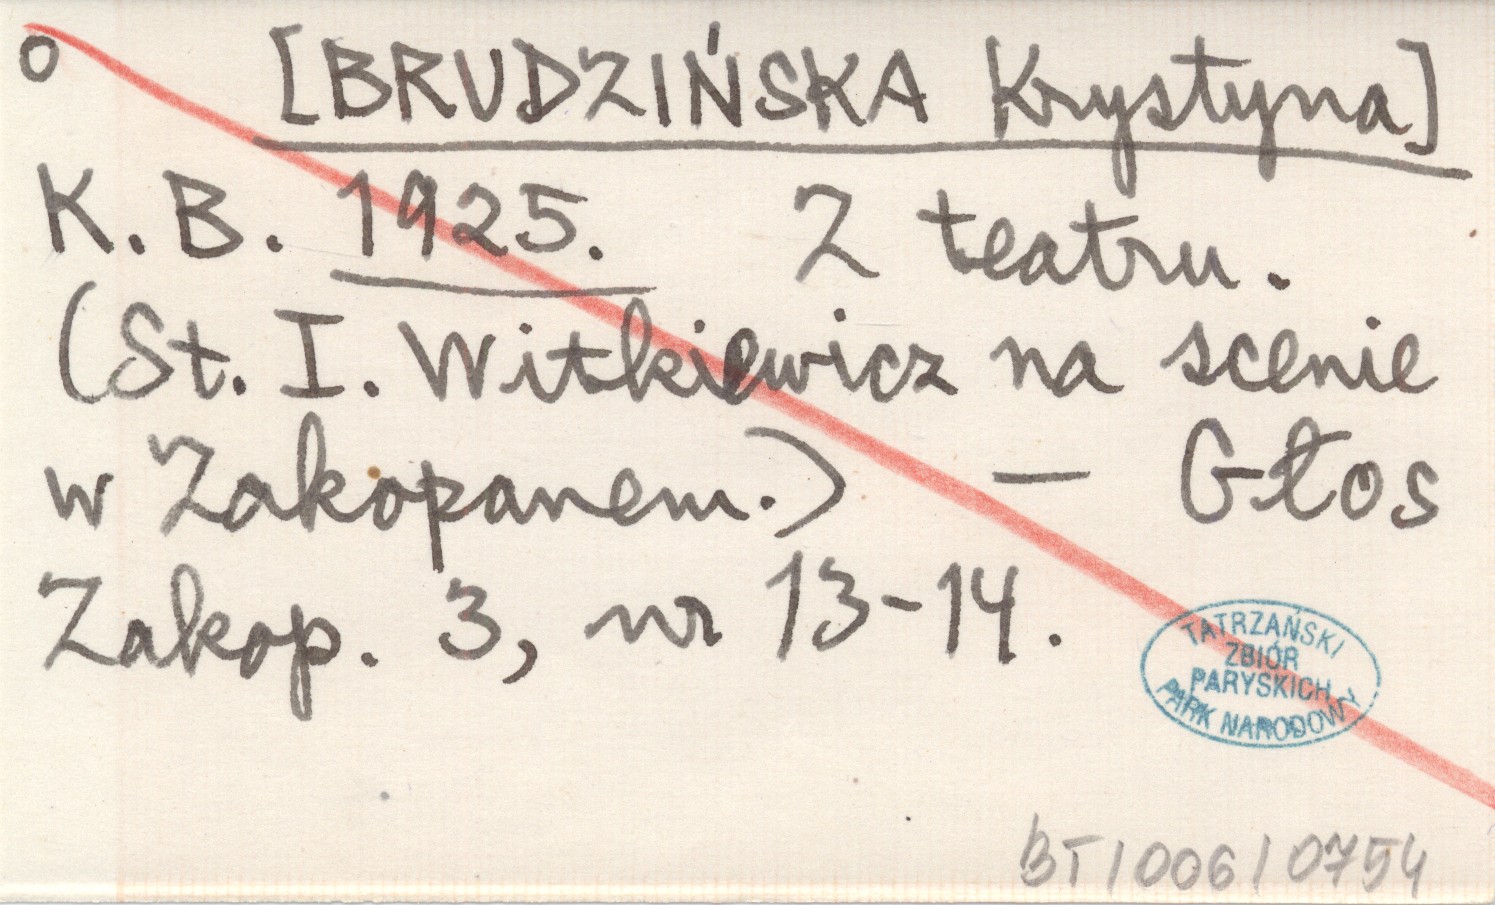 o [BRUDZIŃSKA Krystyna]
K. B. 1925. Z teatru.
(St. I. Witkiewicz na scenie
w Zakopanem.) — Głos
Zakop. 3, nr 13-14.
TATRZAŃSKI
ZBIÓR
PARYSKICH
PARK NARODOWY
BT/006/0754